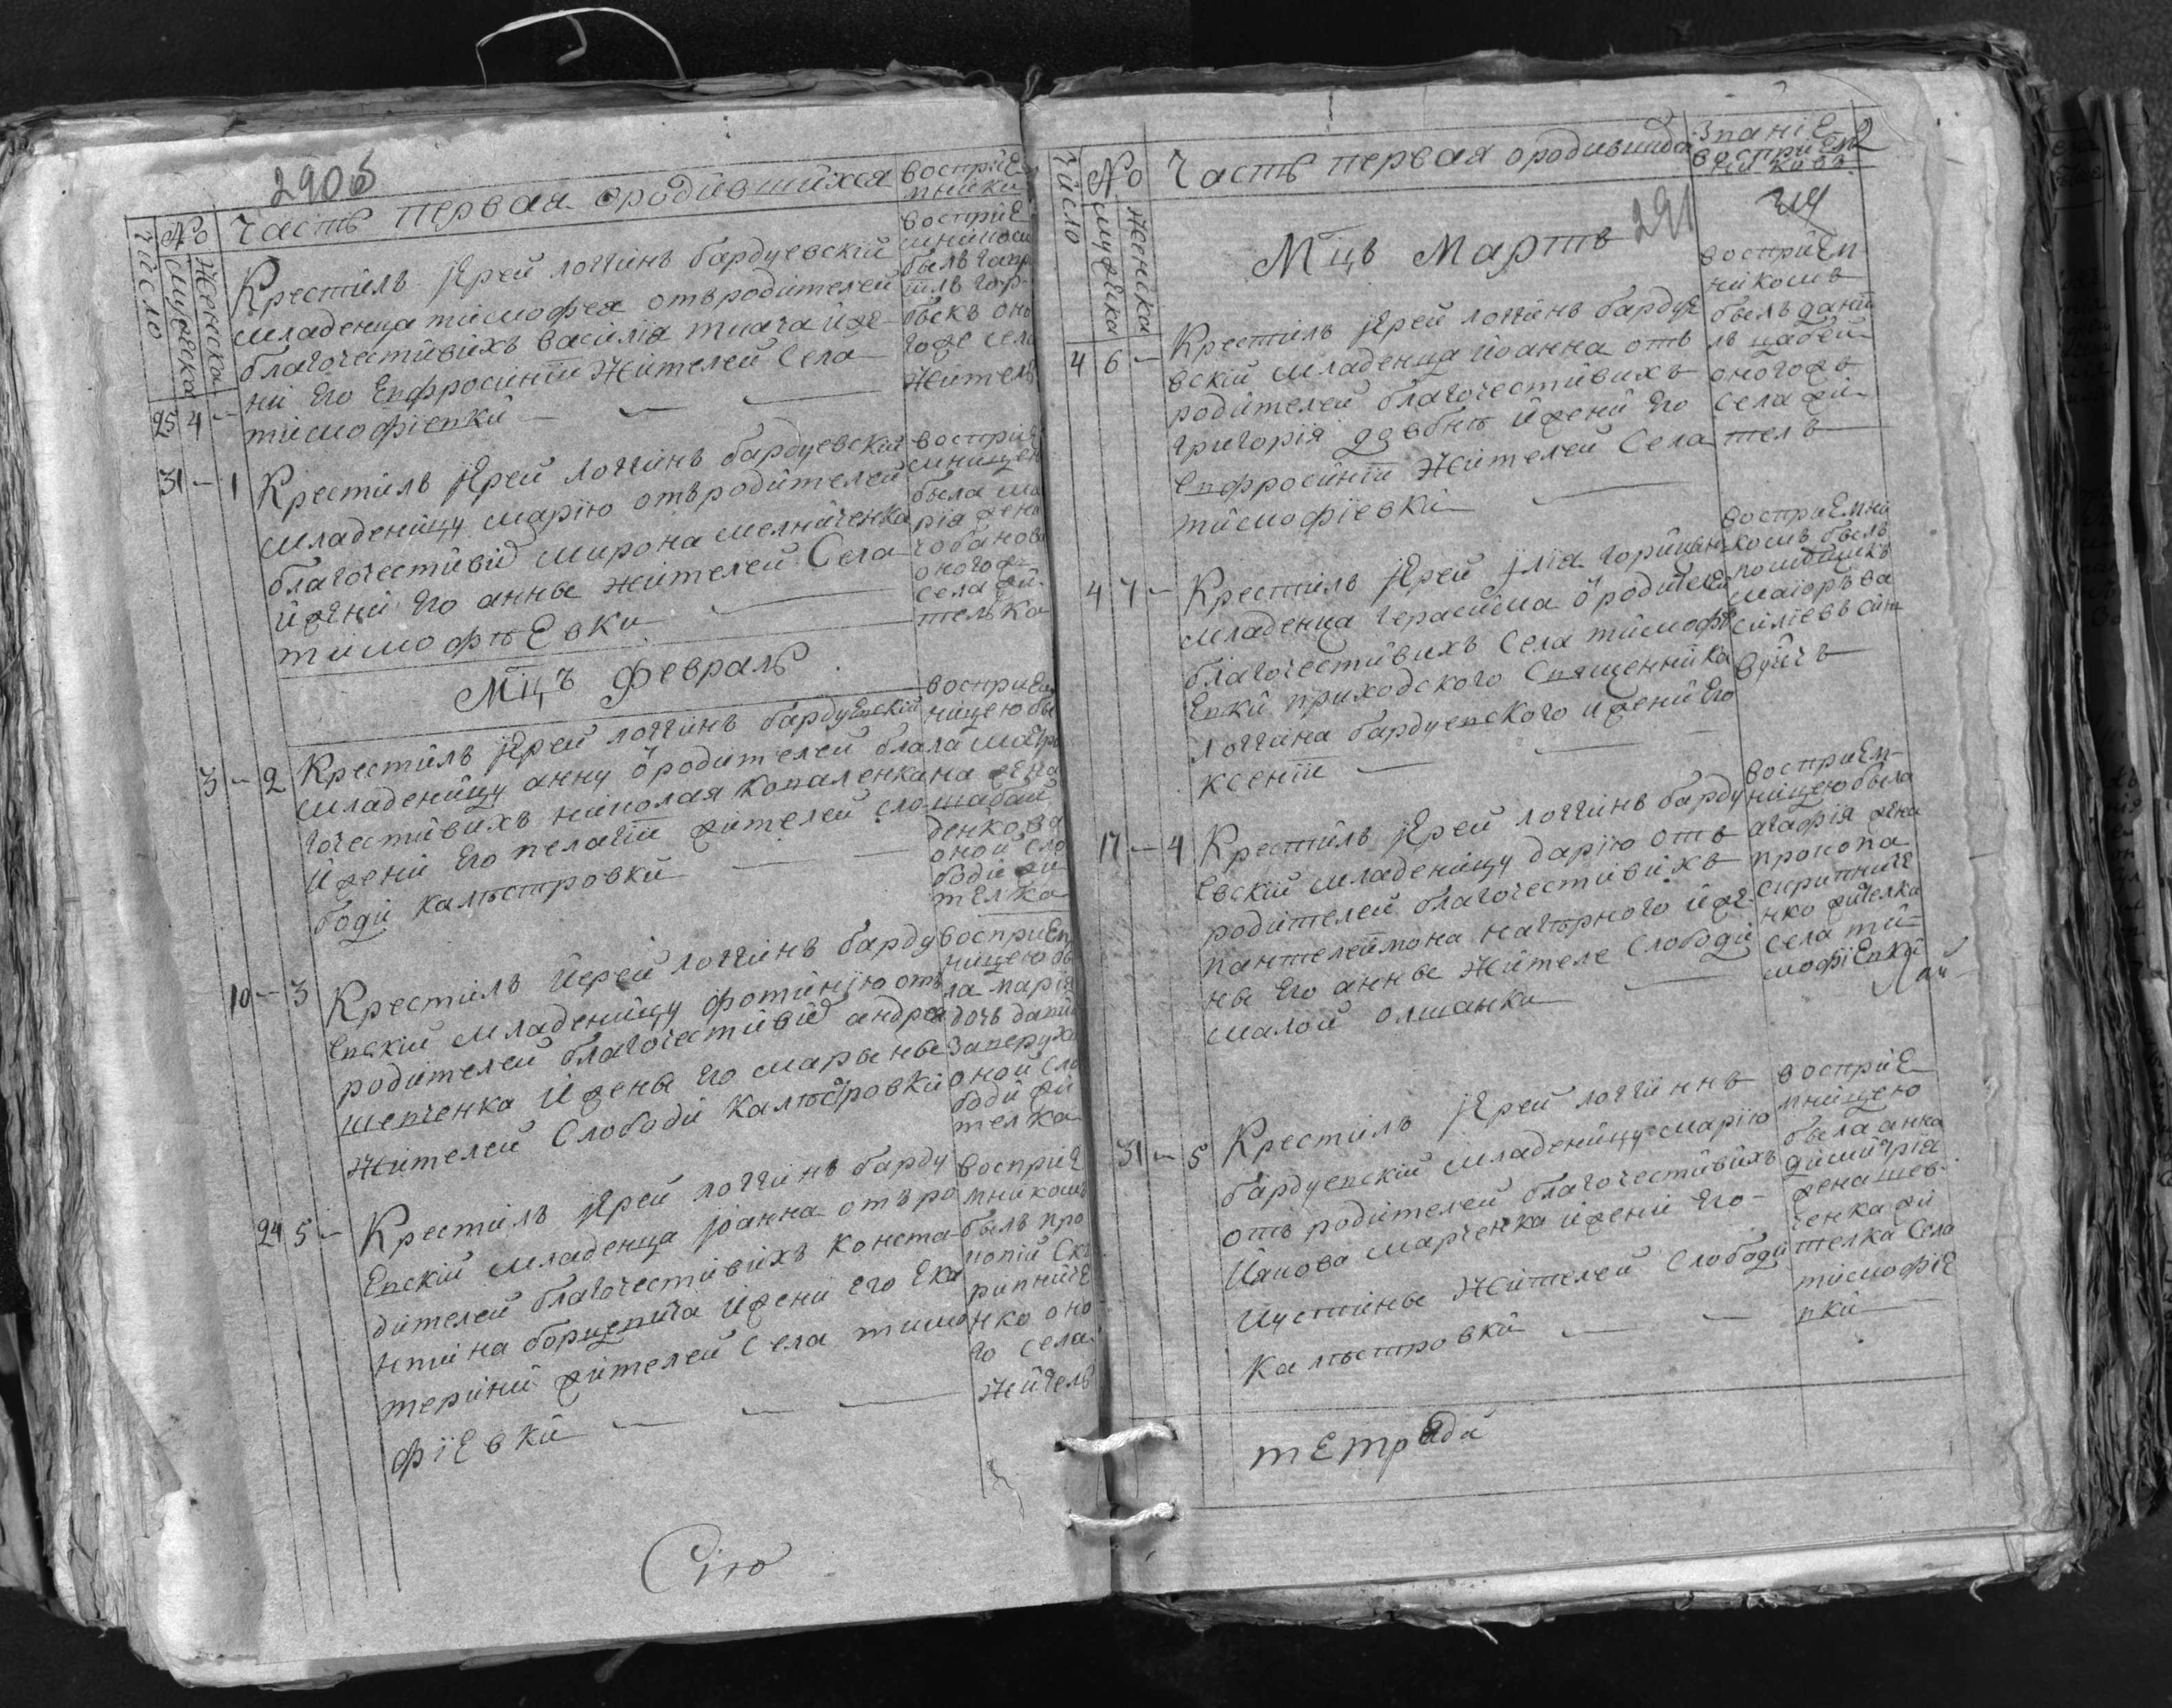 290б
Часть первая ородившихся
восприе
мники
число
No
Мужеска
Женска
25 4 -
Крестилъ Ярей логгинъ бардуевскій
младенца тимофея отъ родителей
благочестивихъ василія ткача и же-
ни Его Епфросиніи Жителей Села
тимофіепки
восприе
мникомъ
былъ гапр
илъ гор-
бекъ оно
гоже села
Житель
31 - 1
Крестилъ Ярей Логгинъ бардуевскій
младеницу марію отъ родителей
благочестивих мирона мелниченка
и жени Его анны жителей Села
тимофѣЕвки
восприя
мницею
была ма
рія жена
чобанова
оногоже
села жи-
телька
Мцъ Февраль
3 - 2
Крестилъ Ярей логгинъ бардуЕпскій
младеницу анну о родителей бла
гочестивихъ николая Копаленка
и жени Его пелагіи жителей сло
боди калѣстровки
восприем
ницею бы
ла матро
на жена
шабай
денкова
оной сло
боди жи
телка
10 - 3
Крестилъ Иерей логгинъ барду
епскій младеницу фотинію отъ
родителей благочестивих андрея
шепченка и жены Его марыны
Жителей Слободи Калѣстровки
восприЕм
ницею бы
ла марія
дочь дани
Заперуха
оной сло
боди жи
телка
24 5 -
Крестилъ Ярей логгинъ барду
Епскій младенца іоанна отъ ро
дителей благочестивихъ конста
нтина борщепича и жени Его Ека
терини жителей Села тимо
фіЕвки
восприе
мникомъ
былъ про
копій Ск
рипниче
нко оно
го села
Житель
Сію
No
число
Мужеска
Женска
Часть первая ородившихся
Званіе
восприем
никовъ
2
291
Мцъ Мартъ
4 6 -
Крестилъ Ярей логгинъ бардуе
вскій младенца иоанна отъ
родителей благочестивихъ
григорія довбнѣ и жени Его
Епфросиніи Жителей Села
тимофіевки
восприем
никомъ
былъ дані
лъ шабей
оногоже
села жи
тель
4 7 -
Крестилъ Ярей Ілія гориц
младенца герасима о родителей
благочестивихъ Села тимофѣ
Епки приходского Священника
Логгина бардуепского и жени Его
ксеніи
восприемни
комъ былъ
помѣщикъ
маіоръ ва
силіевъ
вуичъ
17 - 4
Крестилъ Ярей логгинъ барду
Евскій младеницу дарію отъ
родителей благочестивихъ
пантелеймона нагорного и же
ны Его анны Жителе Слободи
малой олшанки
восприем-
ницею была
агафія жена
прокопа
скрипниче
нко жителка
села ти-
мофіЕпки
31 - 5
Крестилъ Ярей логгинъ
бардуепскій младеницу марію
отъ родителей благочестивихъ
Иякова марченка и жени Его -
Иустины Жителей Слободи
Калѣстровки
восприе
мницею
была анна
димитрія
жена шев-
ченка жи
телка Села
тимофіе
пки
тЕтради